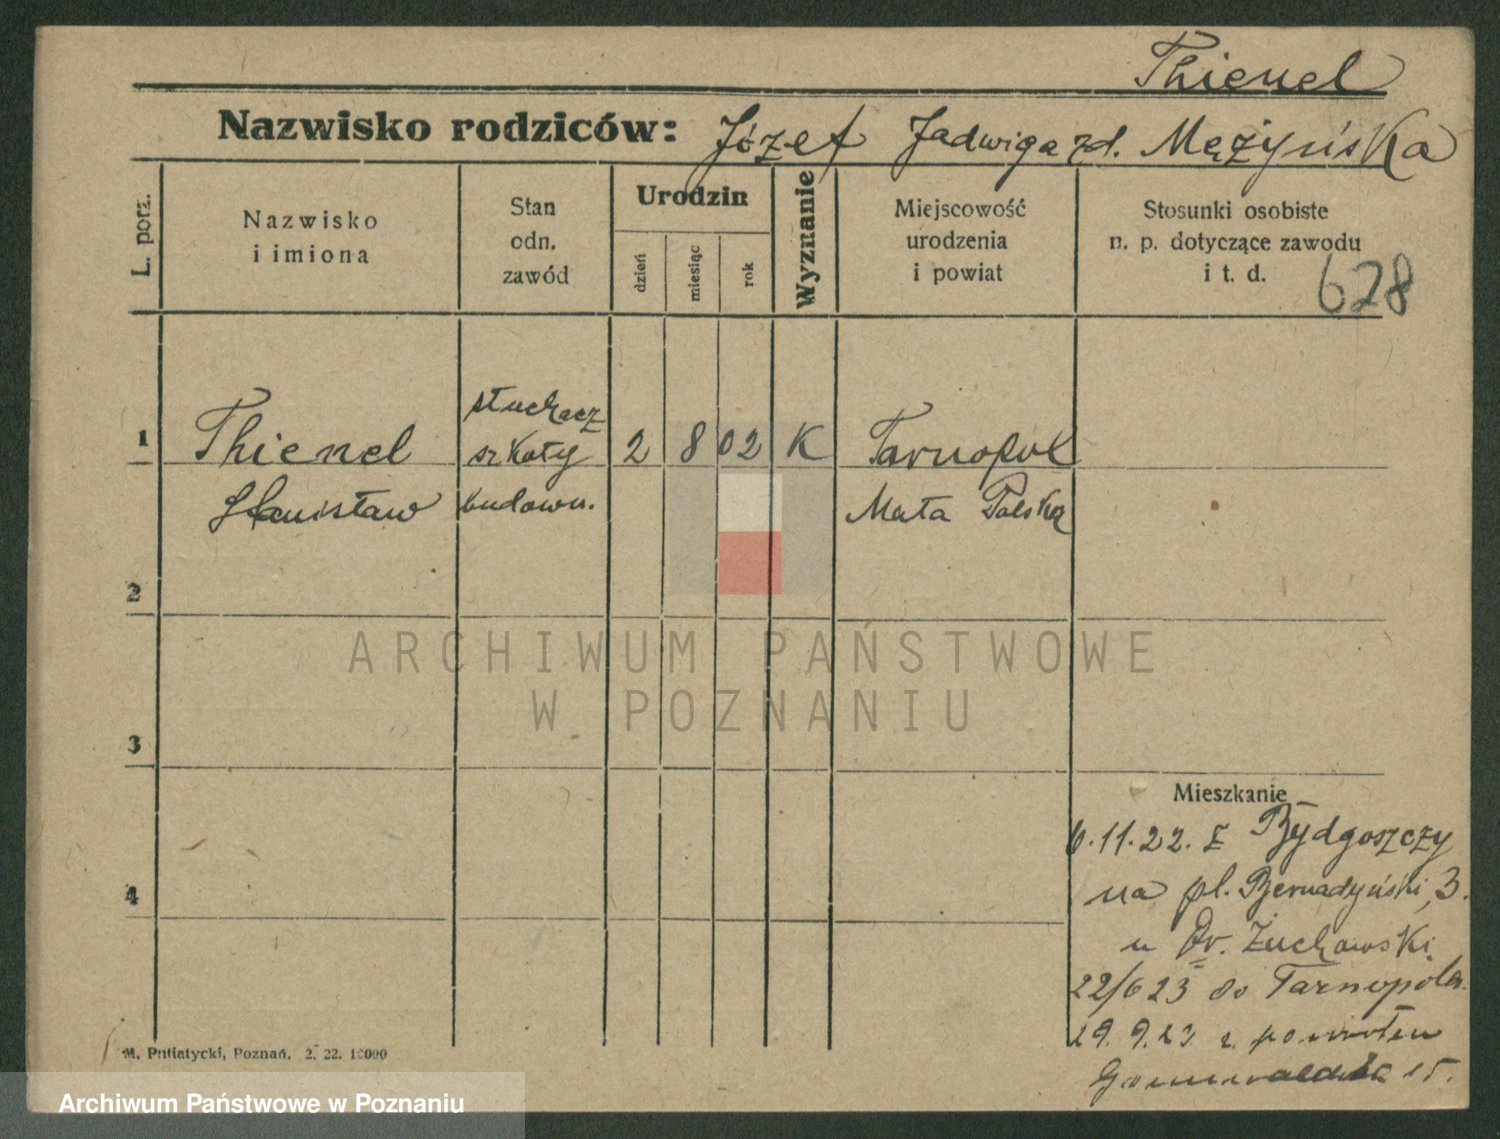 Thienel
Nazwisko rodziców: Józef Jadwiga zd. Mężyńska
L. porz.
Nazwisko
i imiona
Stan
odn.
zawód
Urodzin
dzień
miesiąc
rok
Wyznanie
Miejscowość
urodzenia
i powiat
Stosunki osobiste
n. p. dotyczące zawodu
i t. d.
628
1
Thienel
Stanisław
słuchacz
szkoły
budown.
2 8 02 K
Tarnopol
Mała Polska
2
3
4
Mieszkanie
6.11.22. z Bydgoszczy
na pl. Bernadyński, 3.
u Dr. Żuchowski
22/6 23 do Tarnopola.
29.9.23 z powrotem
15.
M. Putiatycki, Poznań. 2. 22. 10000
ARCHIWUM PAŃSTWOWE
W POZNANIU
Archiwum Państwowe w Poznaniu